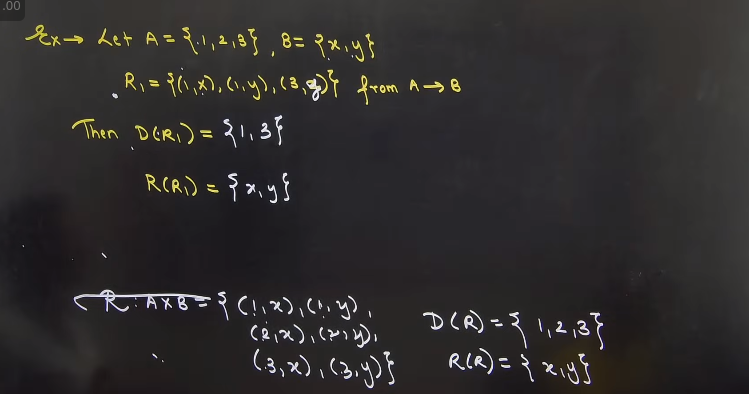 .00
Ex → Let A = {1,2,3}, B = {x,y}
R₁ = {(1,x),(1,y),(3,y)} from A → B
Then D(R₁) = {1,3}
R(R₁) = {x,y}
R: A×B = {(1,x),(1,y),
(2,x),(2,y),
(3,x),(3,y)}
D(R) = {1,2,3}
R(R) = {x,y}